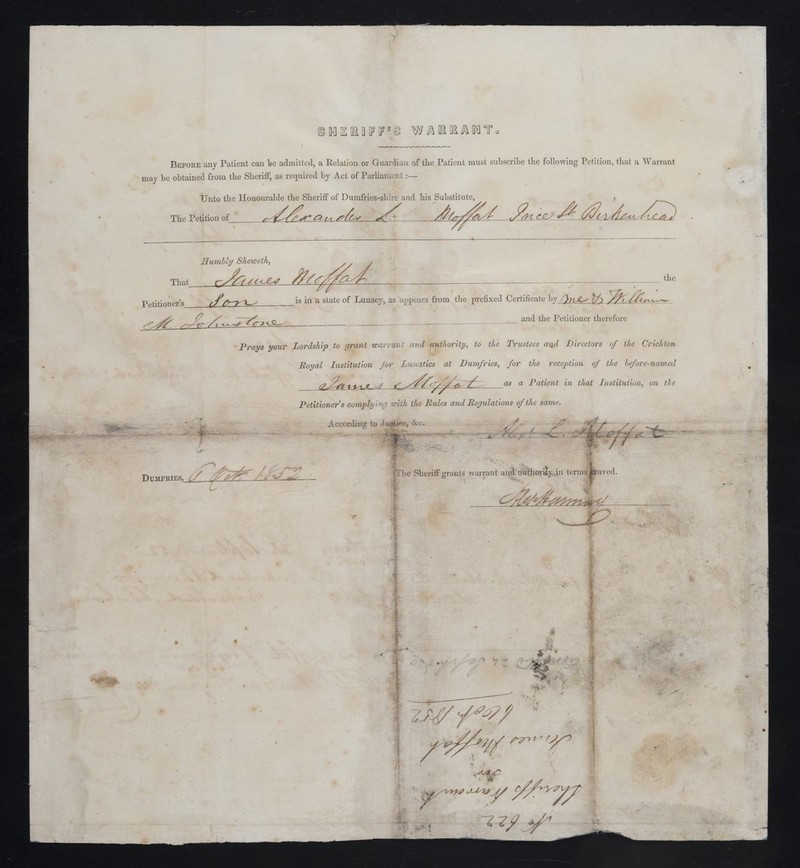 SHERIFF'S WARRANT.
BEFORE any Patient can be admitted, a Relation or Guardian of the Patient must subscribe the following Petition, that a Warrant
may be obtained from the Sheriff, as required by Act of Parliament:—
Unto the Honourable the Sheriff of Dumfries-shire and his Substitute,
The Petition of Alexander L. Moffat Price St. Birkenhead
Humbly Sheweth,
That James Moffat the
Petitioner's Son is in a state of Lunacy, as appears from the prefixed Certificate by me William
M Johnstone and the Petitioner therefore
Prays your Lordship to grant warrant and authority, to the Trustees and Directors of the Crichton
Royal Institution for Lunatics at Dumfries, for the reception of the before-named
James Moffat as a Patient in that Institution, on the
Petitioner's complying with the Rules and Regulations of the same.
According to Justice, &c.
Alex L. Moffat
DUMFRIES, 6 Oct. 1852
The Sheriff grants warrant and authority in terms craved.
No 622
Sheriffs Warrant
for
James Moffat
6 Oct 1852